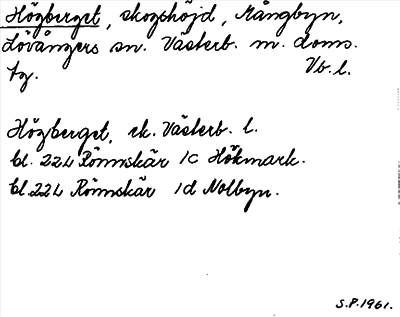 Högberget, skogshöjd, Mångbyn,
Lövångers sn. Västerb. m. doms.
tg. Vb. l.
Högberget, ek. Västerb. l.
bl. 22L Rönnskär 1c Hökmark.
bl. 22L Rönnskär 1d Nolbyn.
S.P. 1961.